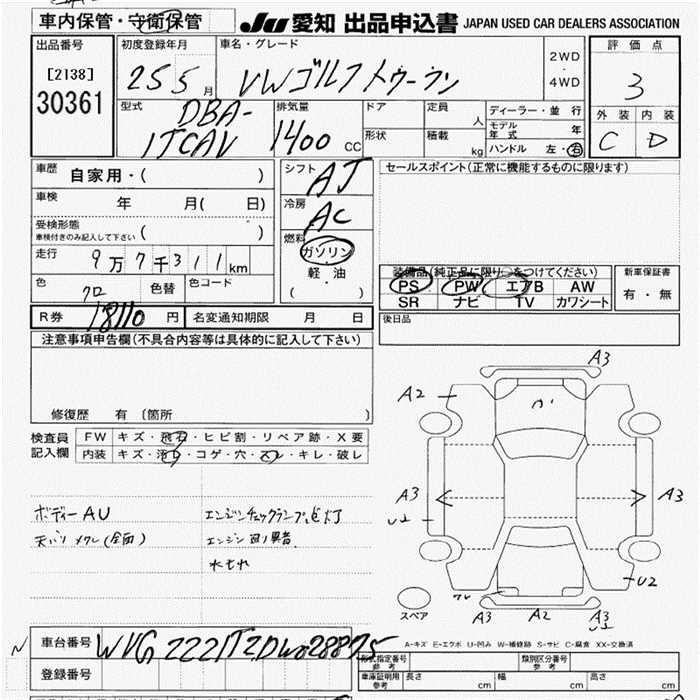 車内保管・守衛保管
JU 愛知 出品申込書 JAPAN USED CAR DEALERS ASSOCIATION
出品番号
[2138]
30361
初度登録年月
25 5 月
車名・グレード
VWゴルフトゥーラン
2WD
・
4WD
評価点
3
型式
DBA-
1TCAV
排気量
1400 CC
ドア
形状
定員 人
積載 kg
ディーラー・並行
モデル年式 年
ハンドル 左・右
外装 内装
C D
車歴 自家用・( )
車検 年 月( 日)
受検形態
車検付きのみ記入して下さい ( )
走行 9万7千311km
色 クロ 色替 色コード
シフト AT
冷房 AC
燃料
ガソリン
軽油
( )
セールスポイント(正常に機能するものに限ります)
装備品(純正品に限り○をつけてください)
PS PW エアB AW
SR ナビ TV カワシート
新車保証書
有・無
R券 18110 円 名変通知期限 月 日
後日品
注意事項申告欄(不具合内容等は具体的に記入して下さい)
修復歴 有 〔箇所 〕
検査員
記入欄
FW キズ・飛石・ヒビ割・リペア跡・X要
内装 キズ・汚レ・コゲ・穴・スレ・キレ・破レ
ボディーAU
天バリ メクレ(全面)
エンジンチェックランプ点灯
エンジン回り異音
水モレ
A3
A2
A3
U2
A3
U2
A3 A2 A3
スペア
A-キズ E-エクボ U-凹み W-補修跡 S-サビ C-腐食 XX-交換済
車台番号 WVGZZZ1TZDW028875
登録番号
型式指定番号
参考
類別区分番号
参考
車庫証明用
参考
長さ cm 幅 cm 高さ cm